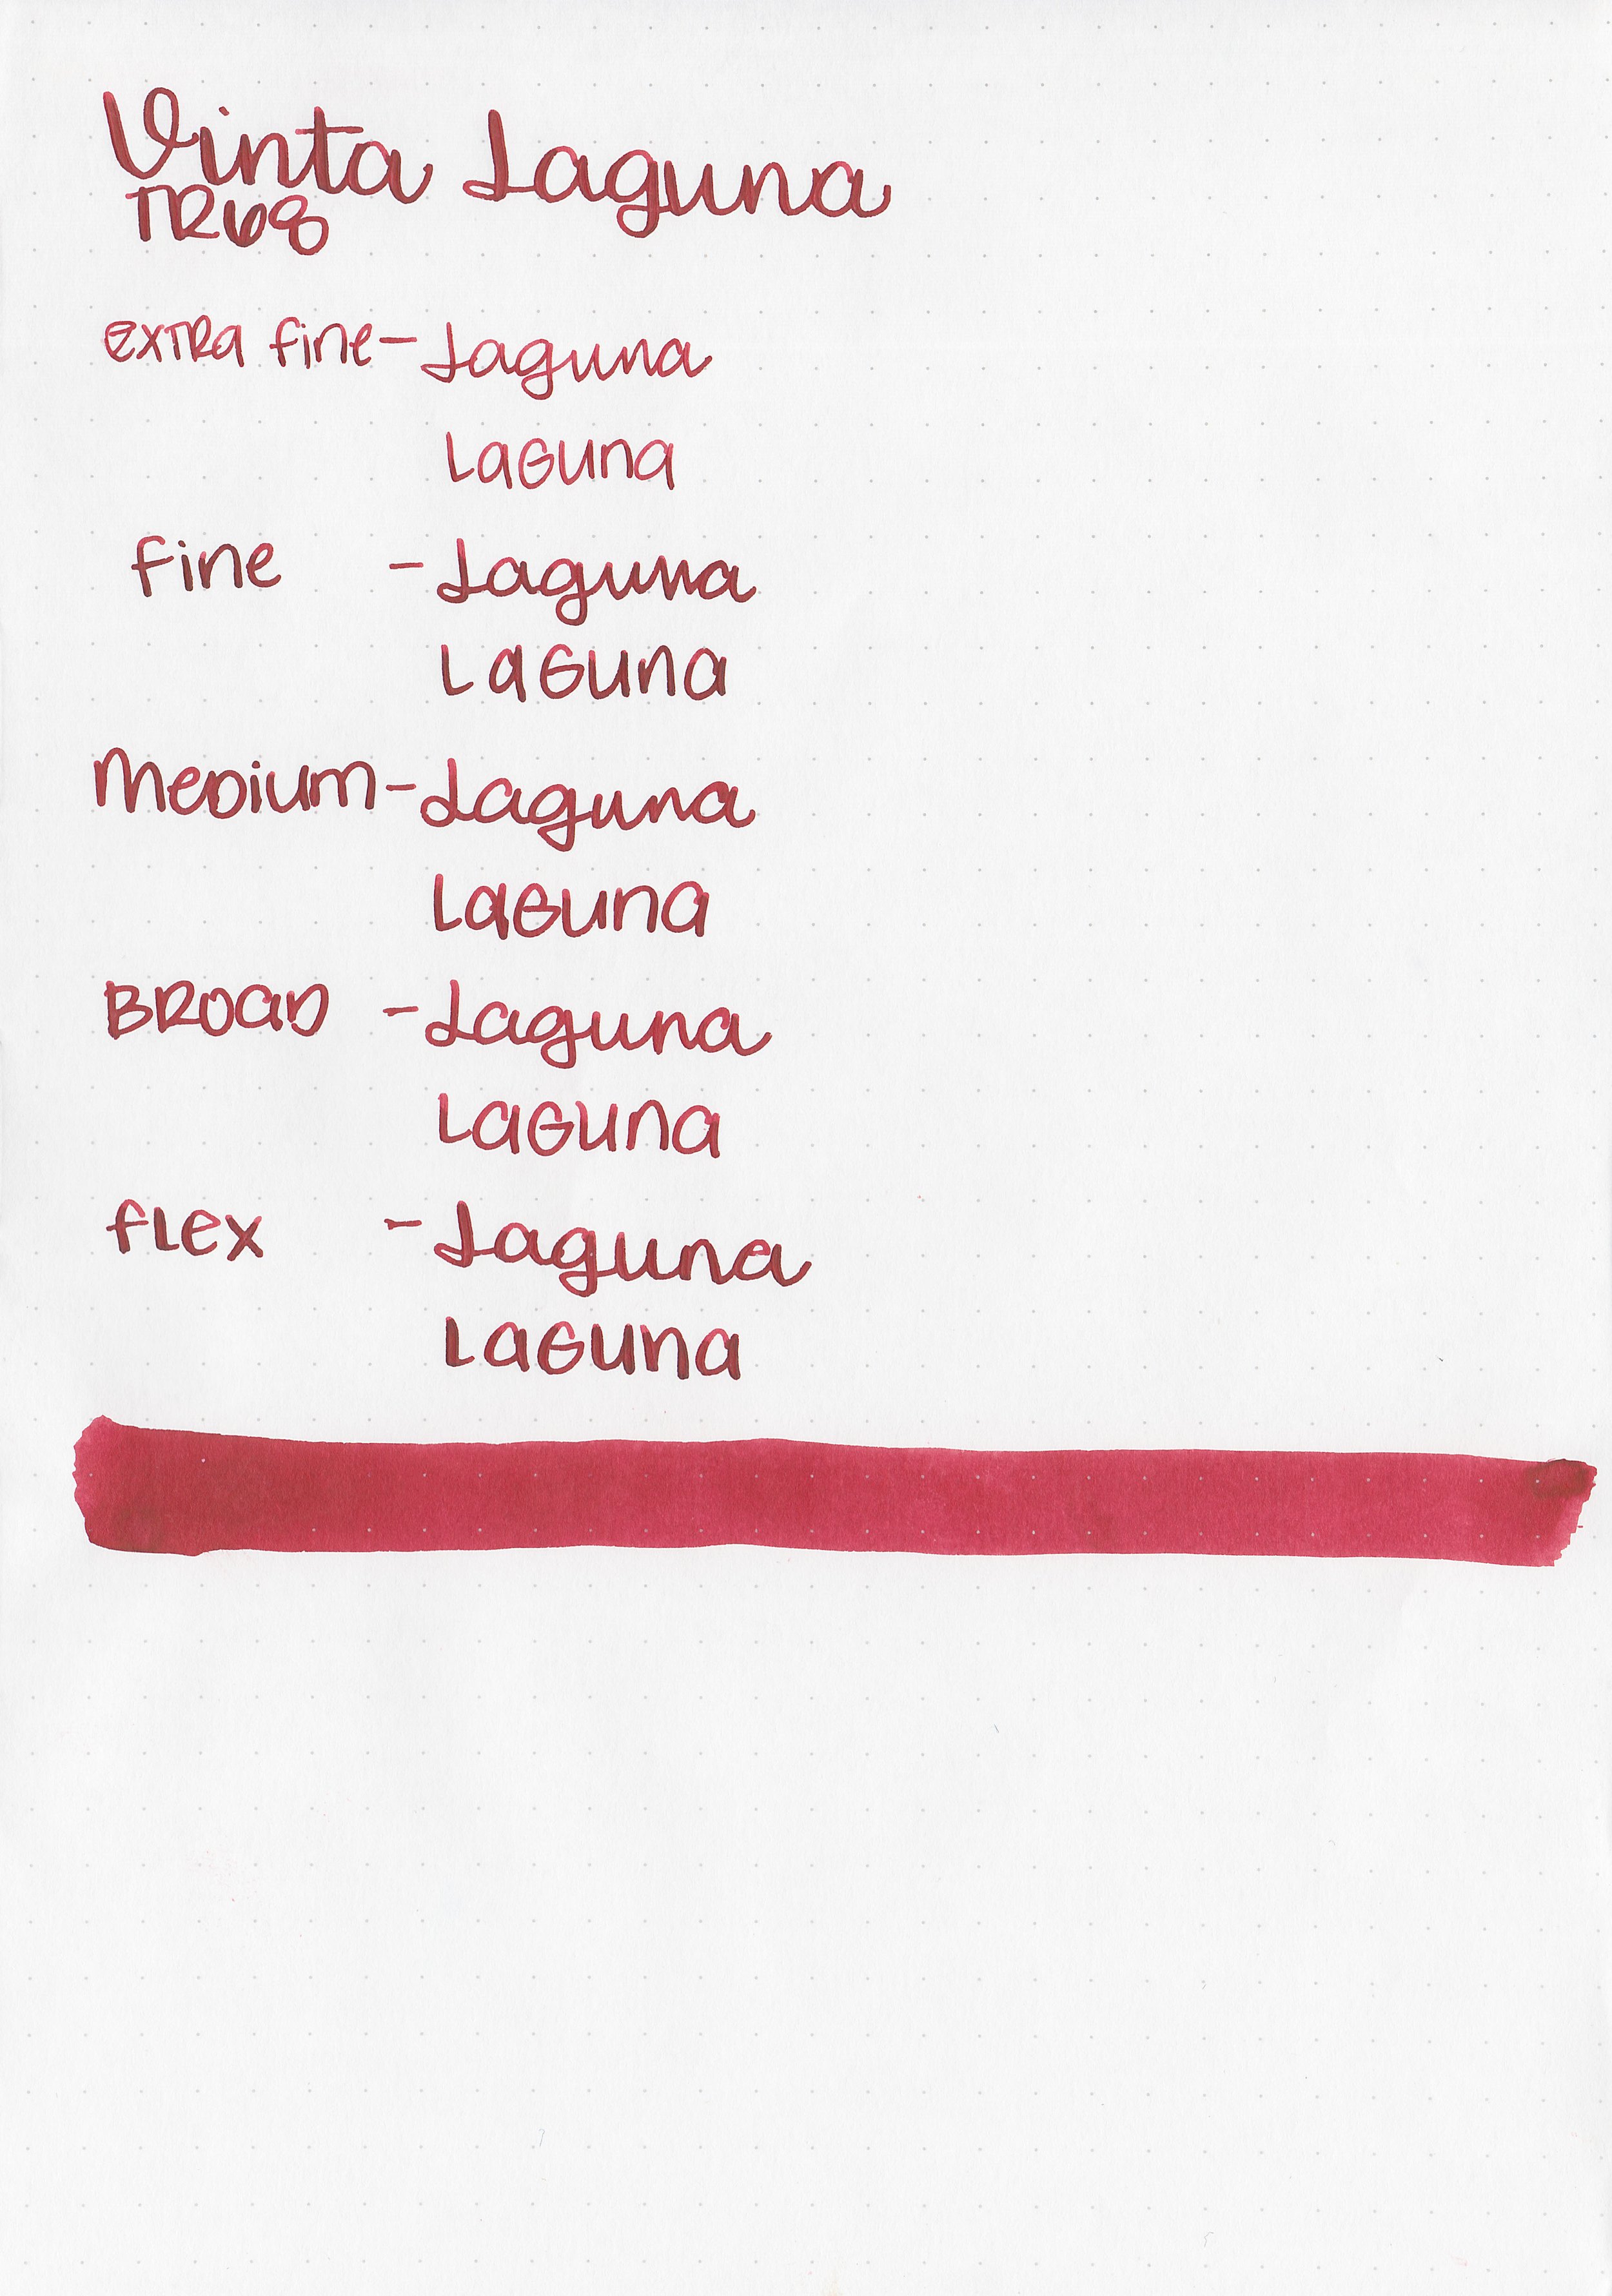 Vinta Laguna
TR68
extra fine - Laguna
Laguna
fine - Laguna
Laguna
Medium - Laguna
Laguna
Broad - Laguna
Laguna
flex - Laguna
Laguna